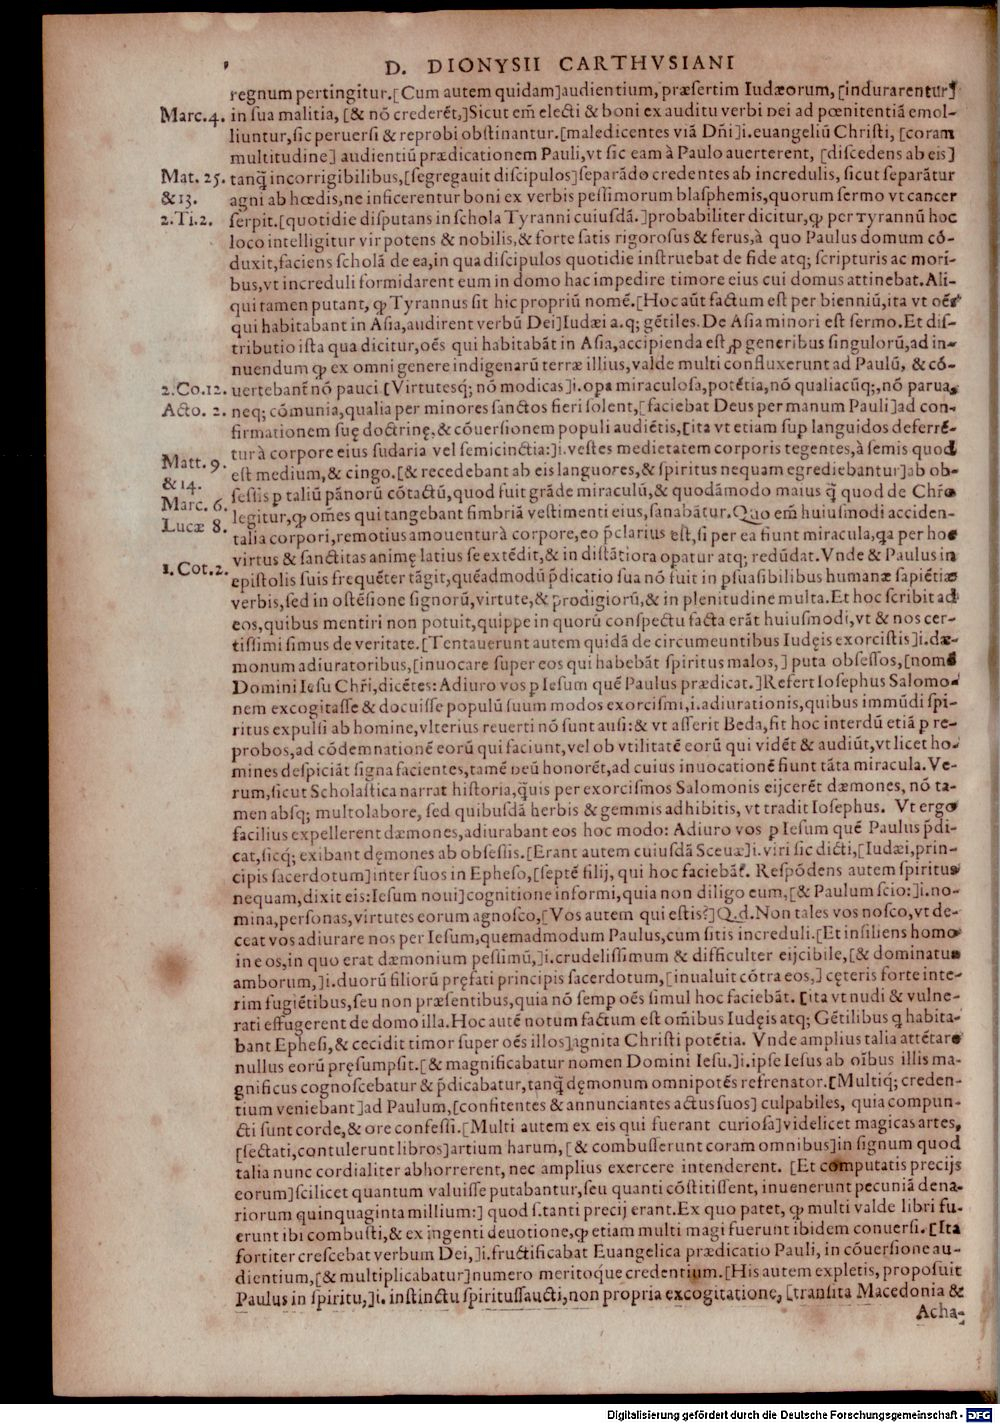 D. DIONYSII CARTHVSIANI
regnum pertingitur.[Cum autem quidam]audientium, præsertim Iudæorum, [indurarentur]
Marc.4. in sua malitia, [& nō crederēt,]Sicut em̄ electi & boni ex auditu verbi DEI ad pœnitentiā emol-
liuntur, sic peruersi & reprobi obstinantur.[maledicentes viā Dn̄i]i.euangeliū Christi, [coram
multitudine] audientiū prædicationem Pauli,vt sic eam à Paulo auerterent, [discedens ab eis]
Mat. 25. tanq̄ incorrigibilibus,[segregauit discipulos]separādo credentes ab incredulis, sicut separātur
&13. agni ab hœdis,ne inficerentur boni ex verbis pessimorum blasphemis,quorum sermo vt cancer
2.Ti.2. serpit.[quotidie disputans in schola Tyranni cuiusdā.]probabiliter dicitur,ꝙ per Tyrannū hoc
loco intelligitur vir potens & nobilis,& forte satis rigorosus & ferus,à quo Paulus domum cō-
duxit,faciens scholā de ea,in qua discipulos quotidie instruebat de fide atq; scripturis ac mori-
bus,vt increduli formidarent eum in domo hac impedire timore eius cui domus attinebat.Ali-
qui tamen putant, ꝙ Tyrannus sit hic propriū nomē.[Hoc aūt factum est per bienniū,ita vt oēs
qui habitabant in Asia,audirent verbū Dei]Iudæi a.q; gētiles.De Asia minori est sermo.Et dis-
tributio ista qua dicitur,oēs qui habitabāt in Asia,accipienda est ꝓ generibus singulorū,ad in-
nuendum ꝙ ex omni genere indigenarū terræ illius,valde multi confluxerunt ad Paulū, & cō-
2.Co.12. uertebant̄ nō pauci [Virtutesq́; nō modicas]i.opa miraculosa,potētia,nō qualiacūq;,nō parua,
Acto. 2. neq; cōmunia,qualia per minores sanctos fieri solent,[faciebat Deus per manum Pauli]ad con-
firmationem suę doctrinę,& cōuersionem populi audiētis,[ita vt etiam sup languidos deferrē-
tur à corpore eius sudaria vel semicinctia:]i.vestes medietatem corporis tegentes,à semis quod
Matt. 9. est medium,& cingo.[& recedebant ab eis languores,& spiritus nequam egrediebantur]ab ob-
& 14. sessis ꝑ taliū pānorū cōtactū,quod fuit grāde miraculū,& quodāmodo maius q̄ quod de Chr̄o
Marc. 6. legitur,ꝙ om̄es qui tangebant fimbriā vestimenti eius,sanabātur.Quo em̄ huiusmodi acciden-
Lucæ 8. talia corpori,remotius amouentur à corpore,eo p̄clarius est,si per ea fiunt miracula,qa per hoc
virtus & sanctitas animę latius se extēdit,& in distātiora opatur atq; redūdat.Vnde & Paulus in
1.Cot.2. epistolis suis frequēter tāgit,quēadmodū p̄dicatio sua nō fuit in ꝑsuasibilibus humanæ sapiētiæ
verbis,sed in ostēsione signorū,virtute,& prodigiorū,& in plenitudine multa.Et hoc scribit ad
eos,quibus mentiri non potuit,quippe in quorū conspectu facta erāt huiusmodi,vt & nos cer-
tissimi simus de veritate.[Tentauerunt autem quidā de circumeuntibus Iudęis exorcistis]i.dæ-
monum adiuratoribus,[inuocare super eos qui habebāt spiritus malos,] puta obsessos,[nomē
Domini Iesu Chr̄i,dicētes: Adiuro vos ꝑ Iesum quē Paulus prædicat.]Refert Iosephus Salomo-
nem excogitasse & docuisse populū suum modos exorcismi,i.adiurationis,quibus immūdi spi-
ritus expulsi ab homine,vlterius reuerti nō sunt ausi:& vt asserit Beda,fit hoc interdū etiā ꝑ re-
probos,ad cōdemnationē eorū qui faciunt,vel ob vtilitatē eorū qui vidēt & audiūt,vt licet ho-
mines despiciāt signa facientes,tamē DEū honorēt,ad cuius inuocationē fiunt tāta miracula.Ve-
rum,sicut Scholastica narrat historia,q̄uis per exorcismos Salomonis eijcerēt dæmones, nō ta-
men absq; multo labore, sed quibusdā herbis & gemmis adhibitis, vt tradit Iosephus. Vt ergo
facilius expellerent dæmones,adiurabant eos hoc modo: Adiuro vos ꝑ Iesum quē Paulus p̄di-
cat,sicq́; exibant dęmones ab obsessis.[Erant autem cuiusdā Sceuæ]i.viri sic dicti,[Iudæi,prin-
cipis sacerdotum]inter suos in Epheso,[septē filij, qui hoc faciebāt. Respōdens autem spiritus
nequam,dixit eis:Iesum noui]cognitione informi,quia non diligo eum,[& Paulum scio:]i.no-
mina,personas,virtutes eorum agnosco,[Vos autem qui estis?]Q.d.Non tales vos nosco,vt de-
ceat vos adiurare nos per Iesum,quemadmodum Paulus,cum sitis increduli.[Et insiliens homo
in eos,in quo erat dæmonium pessimū,]i.crudelissimum & difficulter eijcibile,[& dominatus
amborum,]i.duorū filiorū pręfati principis sacerdotum,[inualuit cōtra eos,] cęteris forte inte-
rim fugiētibus,seu non præsentibus,quia nō semꝑ oēs simul hoc faciebāt. [ita vt nudi & vulne-
rati effugerent de domo illa.Hoc autē notum factum est om̄ibus Iudęis atq; Gētilibus q̄ habita-
bant Ephesi,& cecidit timor super oēs illos]agnita Christi potētia. Vnde amplius talia attētare
nullus eorū pręsumpsit.[& magnificabatur nomen Domini Iesu.]i.ipse Iesus ab oībus illis ma-
gnificus cognoscebatur & p̄dicabatur,tanq̄ dęmonum omnipotēs refrenator.[Multiq́; creden-
tium veniebant]ad Paulum,[confitentes & annunciantes actus suos] culpabiles, quia compun-
cti sunt corde,& ore confessi.[Multi autem ex eis qui fuerant curiosa]videlicet magicas artes,
[sectati,contulerunt libros]artium harum, [& combusserunt coram omnibus]in signum quod
talia nunc cordialiter abhorrerent, nec amplius exercere intenderent. [Et computatis precijs
eorum]scilicet quantum valuisse putabantur,seu quanti cōstitissent, inuenerunt pecuniā dena-
riorum quinquaginta millium:] quod s.tanti precij erant.Ex quo patet, ꝙ multi valde libri fu-
erunt ibi combusti,& ex ingenti deuotione,ꝙ etiam multi magi fuerunt ibidem conuersi.[Ita
fortiter crescebat verbum Dei,]i.fructificabat Euangelica prædicatio Pauli, in cōuersione au-
dientium,[& multiplicabatur]numero meritoque credentium.[His autem expletis, proposuit
Paulus in spiritu,]i. instinctu spiritussaucti,non propria excogitatione, [transita Macedonia &
Acha-
Digitalisierung gefördert durch die Deutsche Forschungsgemeinschaft - DFG